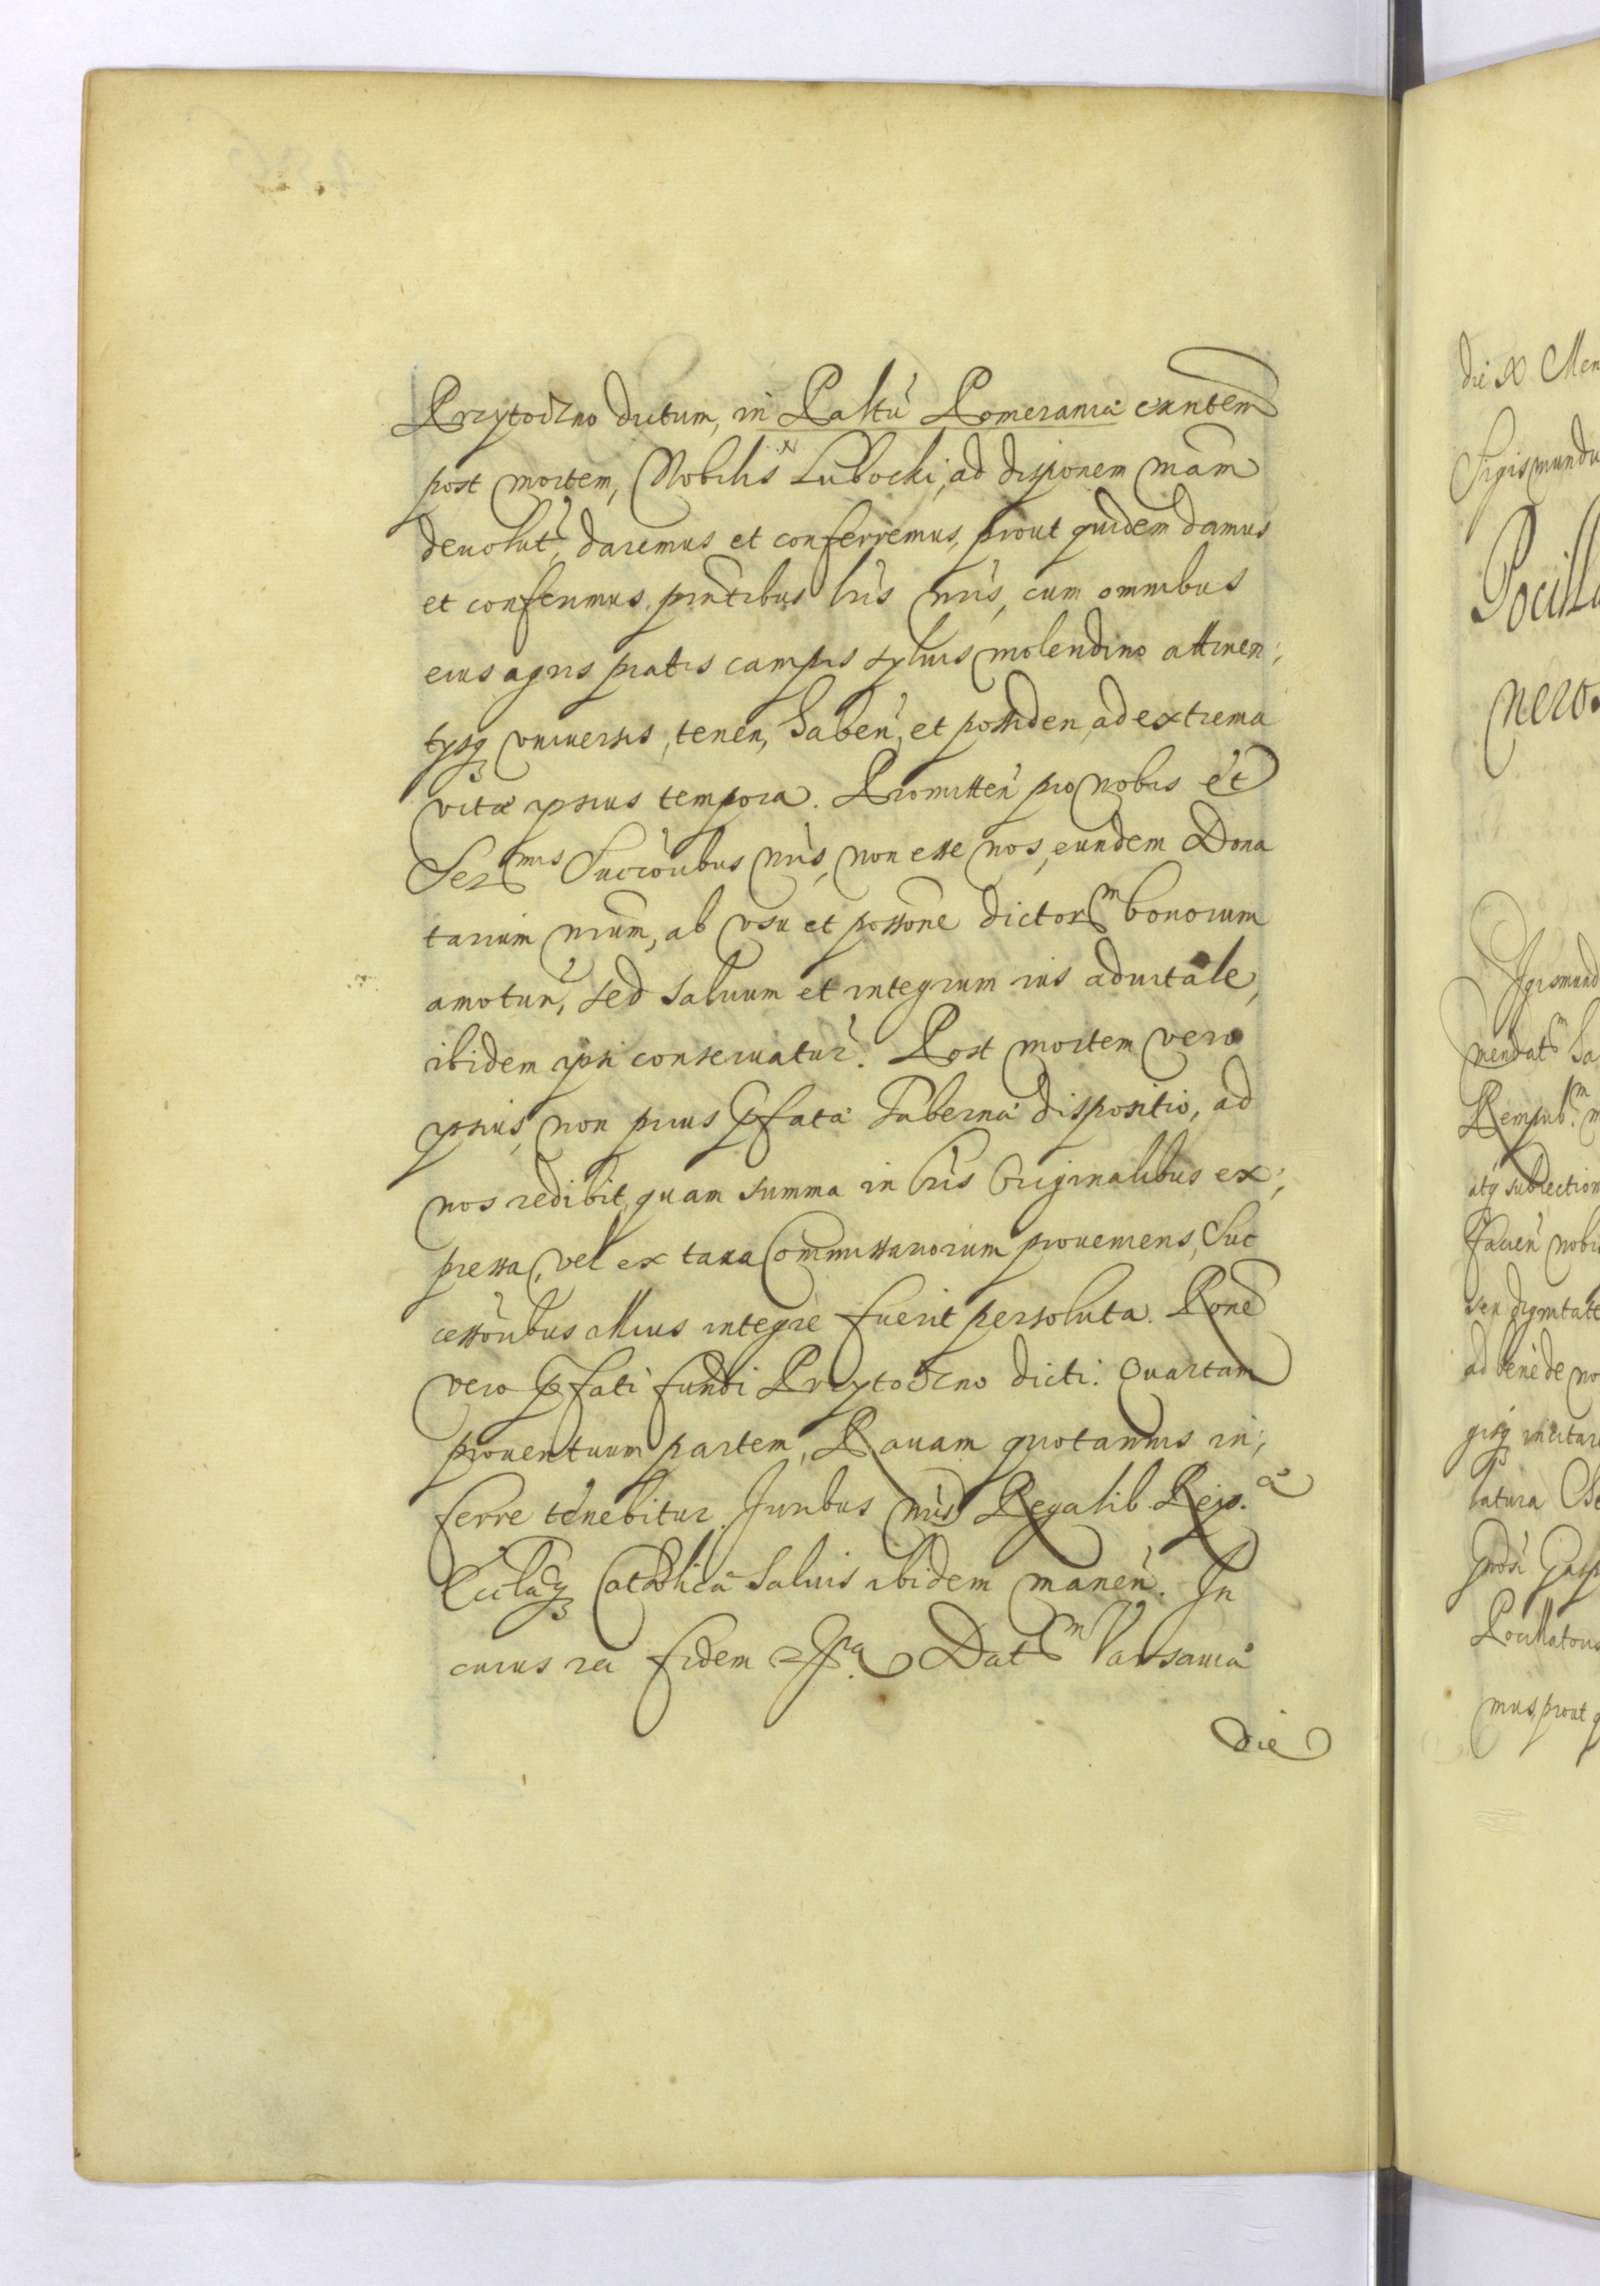 Przytoczno dictum, in Paltu Pomeraniæ exntem
post mortem, Nobilis Lubocki, ad disponem nram
deuolut, daremus et conferremus, prout quidem damus
et conferimus, pntibus lris nris, cum omnibus
eius agris pratis campis syluis molendino attinen;
tysq vniuersis, tenen, haben, et possiden, ad extrema
vitæ ipsius tempora. Promitten pro nobis et
Sermis Succoribus nris, non esse nos, eundem Dona
tarium nrum, ab vsu et possone dictorm bonorum
amotur, sed saluum et integrum ius aduitale,
ibidem ipsi conseruatur. Post mortem vero
ipsius, non prius pfatæ Tabernæ dispositio, ad
nos redibit, quam summa in lris Originalibus ex;
pressa, vel ex taxa Commissariorum proueniens, Suc
cessoribus illius integre fuerit persoluta. Rone
vero pfati fundi Przytoczno dicti. Quartam
prouentuum partem, Rauam quotannis in;
ferre tenebitur. Juribus nris Regalib. Reip.
Ecclæq Catholicæ saluis ibidem manen. In
cuius rei fidem Datm Varsauiæ
die
die X Men
Sigismundu
Pocilla
nero
mendatm
Rempubm
atq subiection
Fauen nobis
seu dignitate
ad bene de no
latura
Pocillatoris
mus, prout q